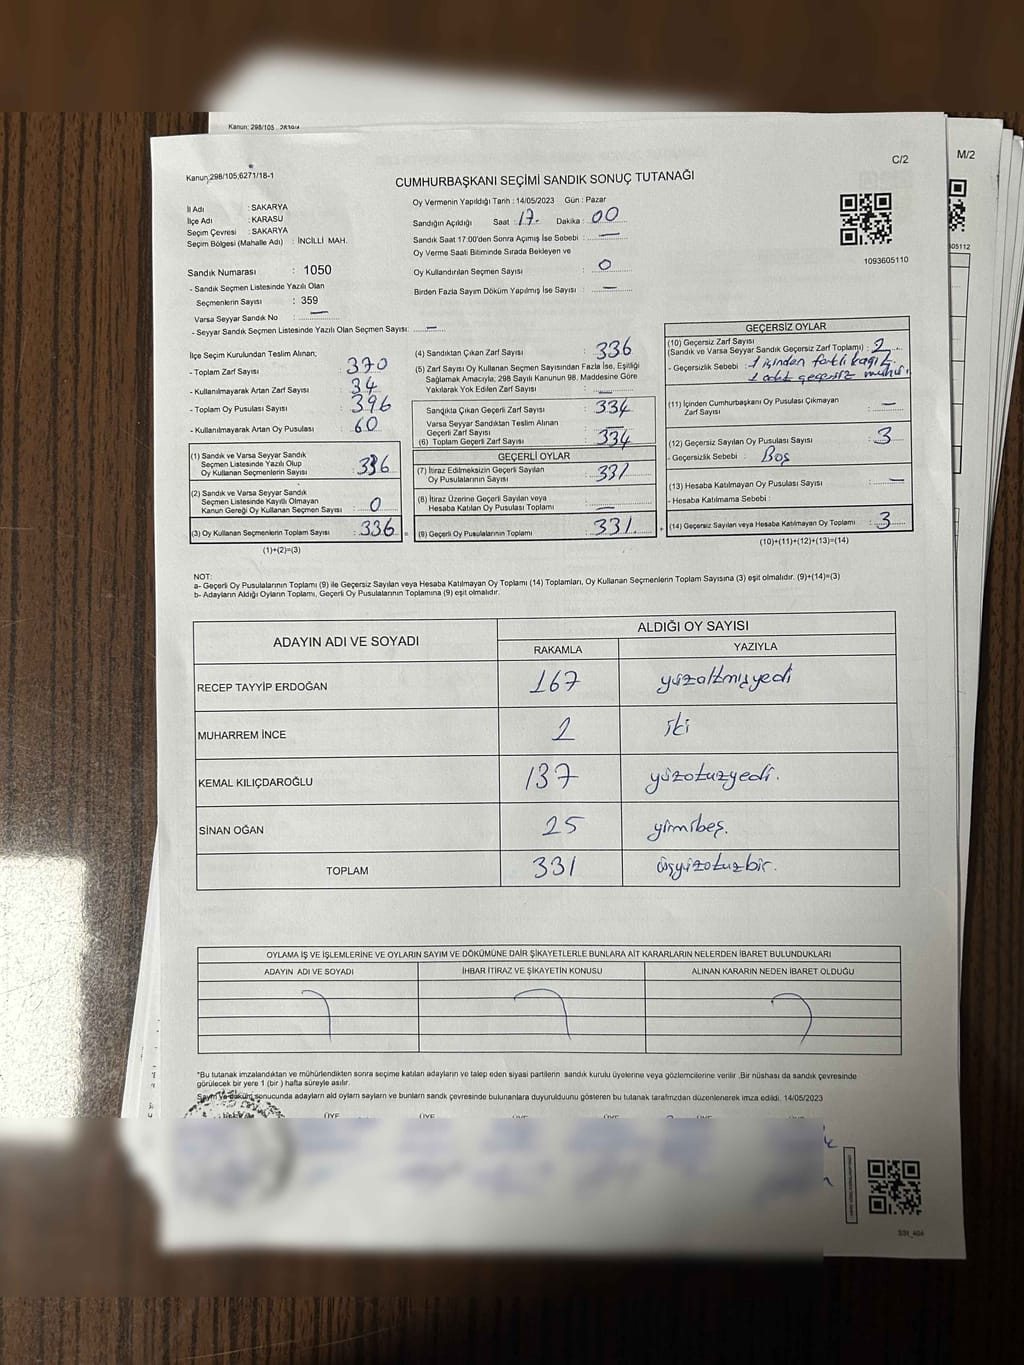 Kanun; 298/105
C/2
M/2
Kanun;298/105;6271/18-1
CUMHURBAŞKANI SEÇİMİ SANDIK SONUÇ TUTANAĞI
İl Adı : SAKARYA
İlçe Adı : KARASU
Seçim Çevresi : SAKARYA
Seçim Bölgesi (Mahalle Adı) : İNCİLLİ MAH.
Oy Vermenin Yapıldığı Tarih : 14/05/2023 Gün : Pazar
Sandığın Açıldığı Saat : 17. Dakika : 00
Sandık Saat 17:00'den Sonra Açılmış İse Sebebi : —
Oy Verme Saati Bitiminde Sırada Bekleyen ve
Oy Kullandırılan Seçmen Sayısı : 0
Birden Fazla Sayım Döküm Yapılmış İse Sayısı : —
1093605110
05112
Sandık Numarası : 1050
- Sandık Seçmen Listesinde Yazılı Olan
Seçmenlerin Sayısı : 359
Varsa Seyyar Sandık No : —
- Seyyar Sandık Seçmen Listesinde Yazılı Olan Seçmen Sayısı: —
İlçe Seçim Kurulundan Teslim Alınan;
- Toplam Zarf Sayısı : 370
- Kullanılmayarak Artan Zarf Sayısı : 34
- Toplam Oy Pusulası Sayısı : 396
- Kullanılmayarak Artan Oy Pusulası : 60
(1) Sandık ve Varsa Seyyar Sandık
Seçmen Listesinde Yazılı Olup
Oy Kullanan Seçmenlerin Sayısı : 336
(2) Sandık ve Varsa Seyyar Sandık
Seçmen Listesinde Kayıtlı Olmayan
Kanun Gereği Oy Kullanan Seçmen Sayısı : 0
(3) Oy Kullanan Seçmenlerin Toplam Sayısı : 336
(1)+(2)=(3)
(4) Sandıktan Çıkan Zarf Sayısı : 336
(5) Zarf Sayısı Oy Kullanan Seçmen Sayısından Fazla İse, Eşitliği
Sağlamak Amacıyla; 298 Sayılı Kanunun 98. Maddesine Göre
Yakılarak Yok Edilen Zarf Sayısı : —
Sandıkta Çıkan Geçerli Zarf Sayısı : 334
Varsa Seyyar Sandıktan Teslim Alınan
Geçerli Zarf Sayısı : —
(6) Toplam Geçerli Zarf Sayısı : 334
GEÇERLİ OYLAR
(7) İtiraz Edilmeksizin Geçerli Sayılan
Oy Pusulalarının Sayısı : 331
(8) İtiraz Üzerine Geçerli Sayılan veya
Hesaba Katılan Oy Pusulası Toplamı : —
(9) Geçerli Oy Pusulalarının Toplamı : 331
GEÇERSİZ OYLAR
(10) Geçersiz Zarf Sayısı
(Sandık ve Varsa Seyyar Sandık Geçersiz Zarf Toplamı) : 2
- Geçersizlik Sebebi : 1 içinden farklı kağıt
1 adet geçersiz mühür.
(11) İçinden Cumhurbaşkanı Oy Pusulası Çıkmayan
Zarf Sayısı : —
(12) Geçersiz Sayılan Oy Pusulası Sayısı : 3
- Geçersizlik Sebebi : Boş
(13) Hesaba Katılmayan Oy Pusulası Sayısı : —
- Hesaba Katılmama Sebebi :
(14) Geçersiz Sayılan veya Hesaba Katılmayan Oy Toplamı : 3
(10)+(11)+(12)+(13)=(14)
NOT:
a- Geçerli Oy Pusulalarının Toplamı (9) ile Geçersiz Sayılan veya Hesaba Katılmayan Oy Toplamı (14) Toplamları, Oy Kullanan Seçmenlerin Toplam Sayısına (3) eşit olmalıdır. (9)+(14)=(3)
b- Adayların Aldığı Oyların Toplamı, Geçerli Oy Pusulalarının Toplamına (9) eşit olmalıdır.
ADAYIN ADI VE SOYADI ALDIĞI OY SAYISI
RAKAMLA YAZIYLA
RECEP TAYYİP ERDOĞAN 167 yüzaltmışyedi
MUHARREM İNCE 2 iki
KEMAL KILIÇDAROĞLU 137 yüzotuzyedi.
SİNAN OĞAN 25 yirmibeş.
TOPLAM 331 üçyüzotuzbir.
OYLAMA İŞ VE İŞLEMLERİNE VE OYLARIN SAYIM VE DÖKÜMÜNE DAİR ŞİKAYETLERLE BUNLARA AİT KARARLARIN NELERDEN İBARET BULUNDUKLARI
ADAYIN ADI VE SOYADI İHBAR İTİRAZ VE ŞİKAYETİN KONUSU ALINAN KARARIN NEDEN İBARET OLDUĞU
*Bu tutanak imzalandıktan ve mühürlendikten sonra seçime katılan adayların ve talep eden siyasi partilerin sandık kurulu üyelerine veya gözlemcilerine verilir .Bir nüshası da sandık çevresinde
görülecek bir yere 1 (bir ) hafta süreyle asılır.
Sayım ve döküm sonucunda adayların ald oyların sayların ve bunların sandık çevresinde bulunanlara duyurulduunu gösteren bu tutanak tarafmzdan düzenlenerek imza edildi. 14/05/2023